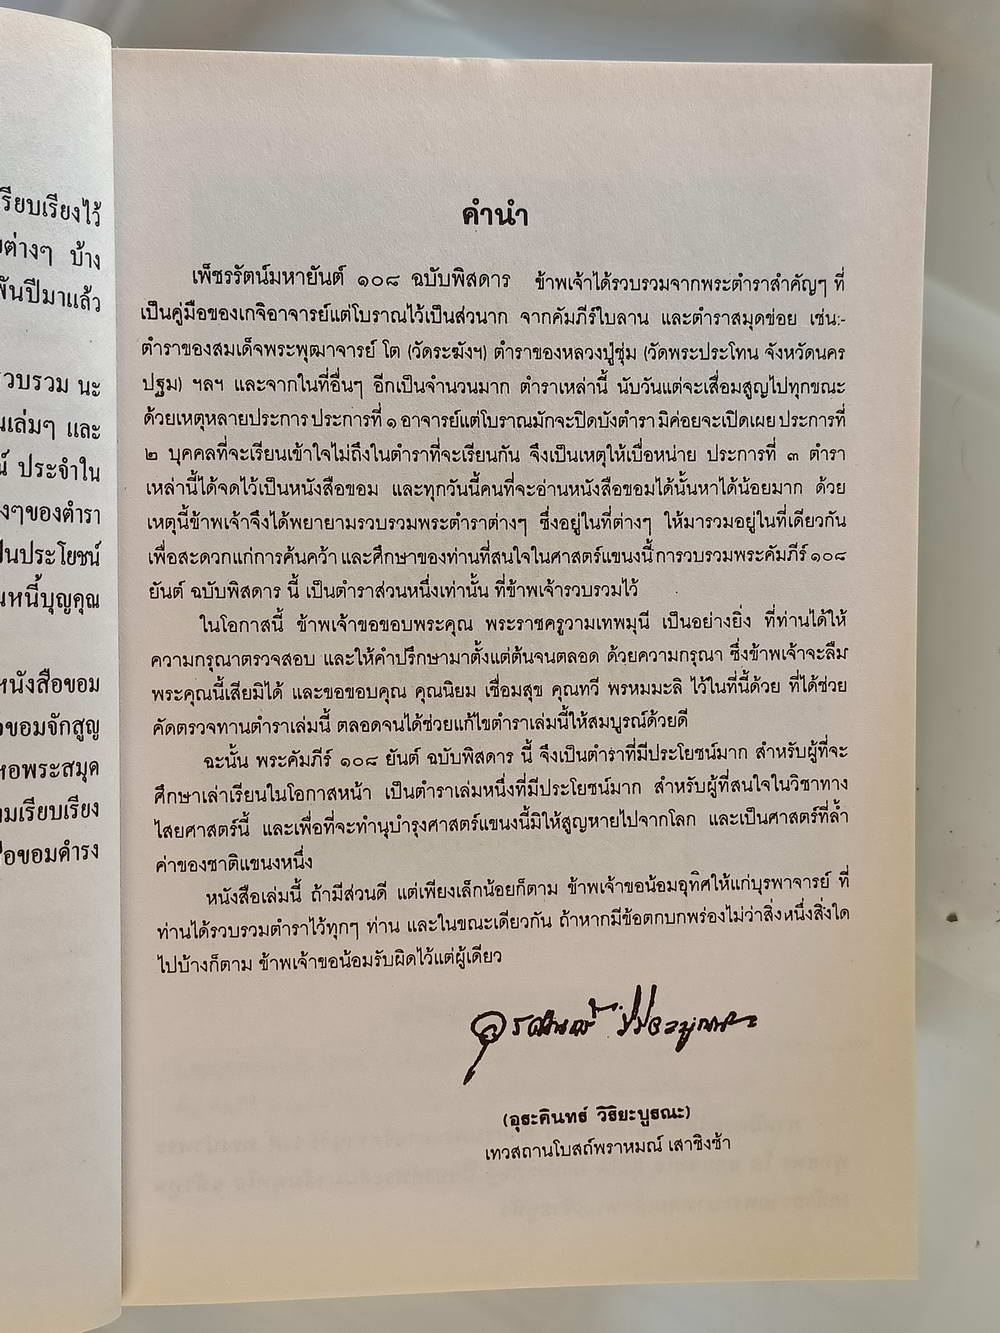 รียบเรียงไว้
ต่างๆ บ้าง
พันปีมาแล้ว
รวบรวม นะ
นเล่มๆ และ
ประจำใน
งๆของตำรา
ป็นประโยชน์
นหนี้บุญคุณ
หนังสือขอม
อขอมจักสูญ
หอพระสมุด
ามเรียบเรียง
อขอมดำรง
คำนำ
เพ็ชรรัตน์มหายันต์ ๑๐๘ ฉบับพิสดาร ข้าพเจ้าได้รวบรวมจากพระตำราสำคัญๆ ที่
เป็นคู่มือของเกจิอาจารย์แต่โบราณไว้เป็นส่วนาก จากคัมภีร์ใบลาน และตำราสมุดข่อย เช่น:-
ตำราของสมเด็จพระพุฒาจารย์ โต (วัดระฆังฯ) ตำราของหลวงปู่ชุ่ม (วัดพระประโทน จังหวัดนคร
ปฐม) ฯลฯ และจากในที่อื่นๆ อีกเป็นจำนวนมาก ตำราเหล่านี้ นับวันแต่จะเสื่อมสูญไปทุกขณะ
ด้วยเหตุหลายประการ ประการที่ ๑ อาจารย์แต่โบราณมักจะปิดบังตำรา มิค่อยจะเปิดเผย ประการที่
๒ บุคคลที่จะเรียนเข้าใจไม่ถึงในตำราที่จะเรียนกัน จึงเป็นเหตุให้เบื่อหน่าย ประการที่ ๓ ตำรา
เหล่านี้ได้จดไว้เป็นหนังสือขอม และทุกวันนี้คนที่จะอ่านหนังสือขอมได้นั้นหาได้น้อยมาก ด้วย
เหตุนี้ข้าพเจ้าจึงได้พยายามรวบรวมพระตำราต่างๆ ซึ่งอยู่ในที่ต่างๆ ให้มารวมอยู่ในที่เดียวกัน
เพื่อสะดวกแก่การค้นคว้า และศึกษาของท่านที่สนใจในศาสตร์แขนงนี้ การวบรวมพระคัมภีร์ ๑๐๘
ยันต์ ฉบับพิสดาร นี้ เป็นตำราส่วนหนึ่งเท่านั้น ที่ข้าพเจ้ารวบรวมไว้
ในโอกาสนี้ ข้าพเจ้าขอขอบพระคุณ พระราชครูวามเทพมุนี เป็นอย่างยิ่ง ที่ท่านได้ให้
ความกรุณาตรวจสอบ และให้คำปรึกษามาตั้งแต่ต้นจนตลอด ด้วยความกรุณา ซึ่งข้าพเจ้าจะลืม
พระคุณนี้เสียมิได้ และขอขอบคุณ คุณนิยม เชื่อมสุข คุณทวี พรหมมะลิ ไว้ในที่นี้ด้วย ที่ได้ช่วย
คัดตรวจทานตำราเล่มนี้ ตลอดจนได้ช่วยแก้ไขตำราเล่มนี้ให้สมบูรณ์ด้วยดี
ฉะนั้น พระคัมภีร์ ๑๐๘ ยันต์ ฉบับพิสดาร นี้ จึงเป็นตำราที่มีประโยชน์มาก สำหรับผู้ที่จะ
ศึกษาเล่าเรียนในโอกาสหน้า เป็นตำราเล่มหนึ่งที่มีประโยชน์มาก สำหรับผู้ที่สนใจในวิชาทาง
ไสยศาสตร์นี้ และเพื่อที่จะทำนุบำรุงศาสตร์แขนงนี้มิให้สูญหายไปจากโลก และเป็นศาสตร์ที่ล้ำ
ค่าของชาติแขนงหนึ่ง
หนังสือเล่มนี้ ถ้ามีส่วนดี แต่เพียงเล็กน้อยก็ตาม ข้าพเจ้าขอน้อมอุทิศให้แก่บุรพาจารย์ ที่
ท่านได้รวบรวมตำราไว้ทุกๆ ท่าน และในขณะเดียวกัน ถ้าหากมีข้อตกบกพร่องไม่ว่าสิ่งหนึ่งสิ่งใด
ไปบ้างก็ตาม ข้าพเจ้าขอน้อมรับผิดไว้แต่ผู้เดียว
(อุระคินทร์ วิริยะบูรณะ)
เทวสถานโบสถ์พราหมณ์ เสาชิงช้า